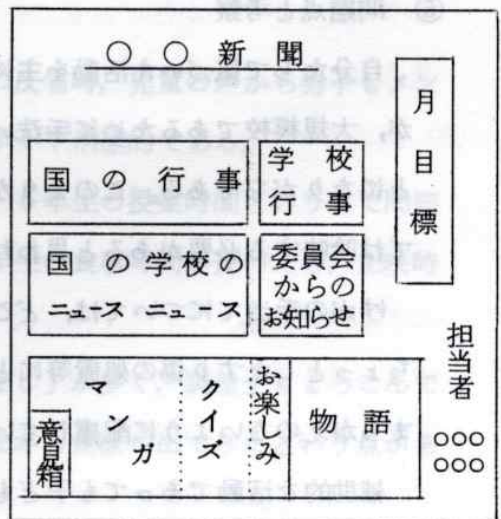 ○○新聞
月目標
国の行事
学校
行事
国の学校の
ニュースニュース
委員会
からの
お知らせ
担当者
○○○
○○○
意見箱
マンガ
クイズ
お楽しみ
物語